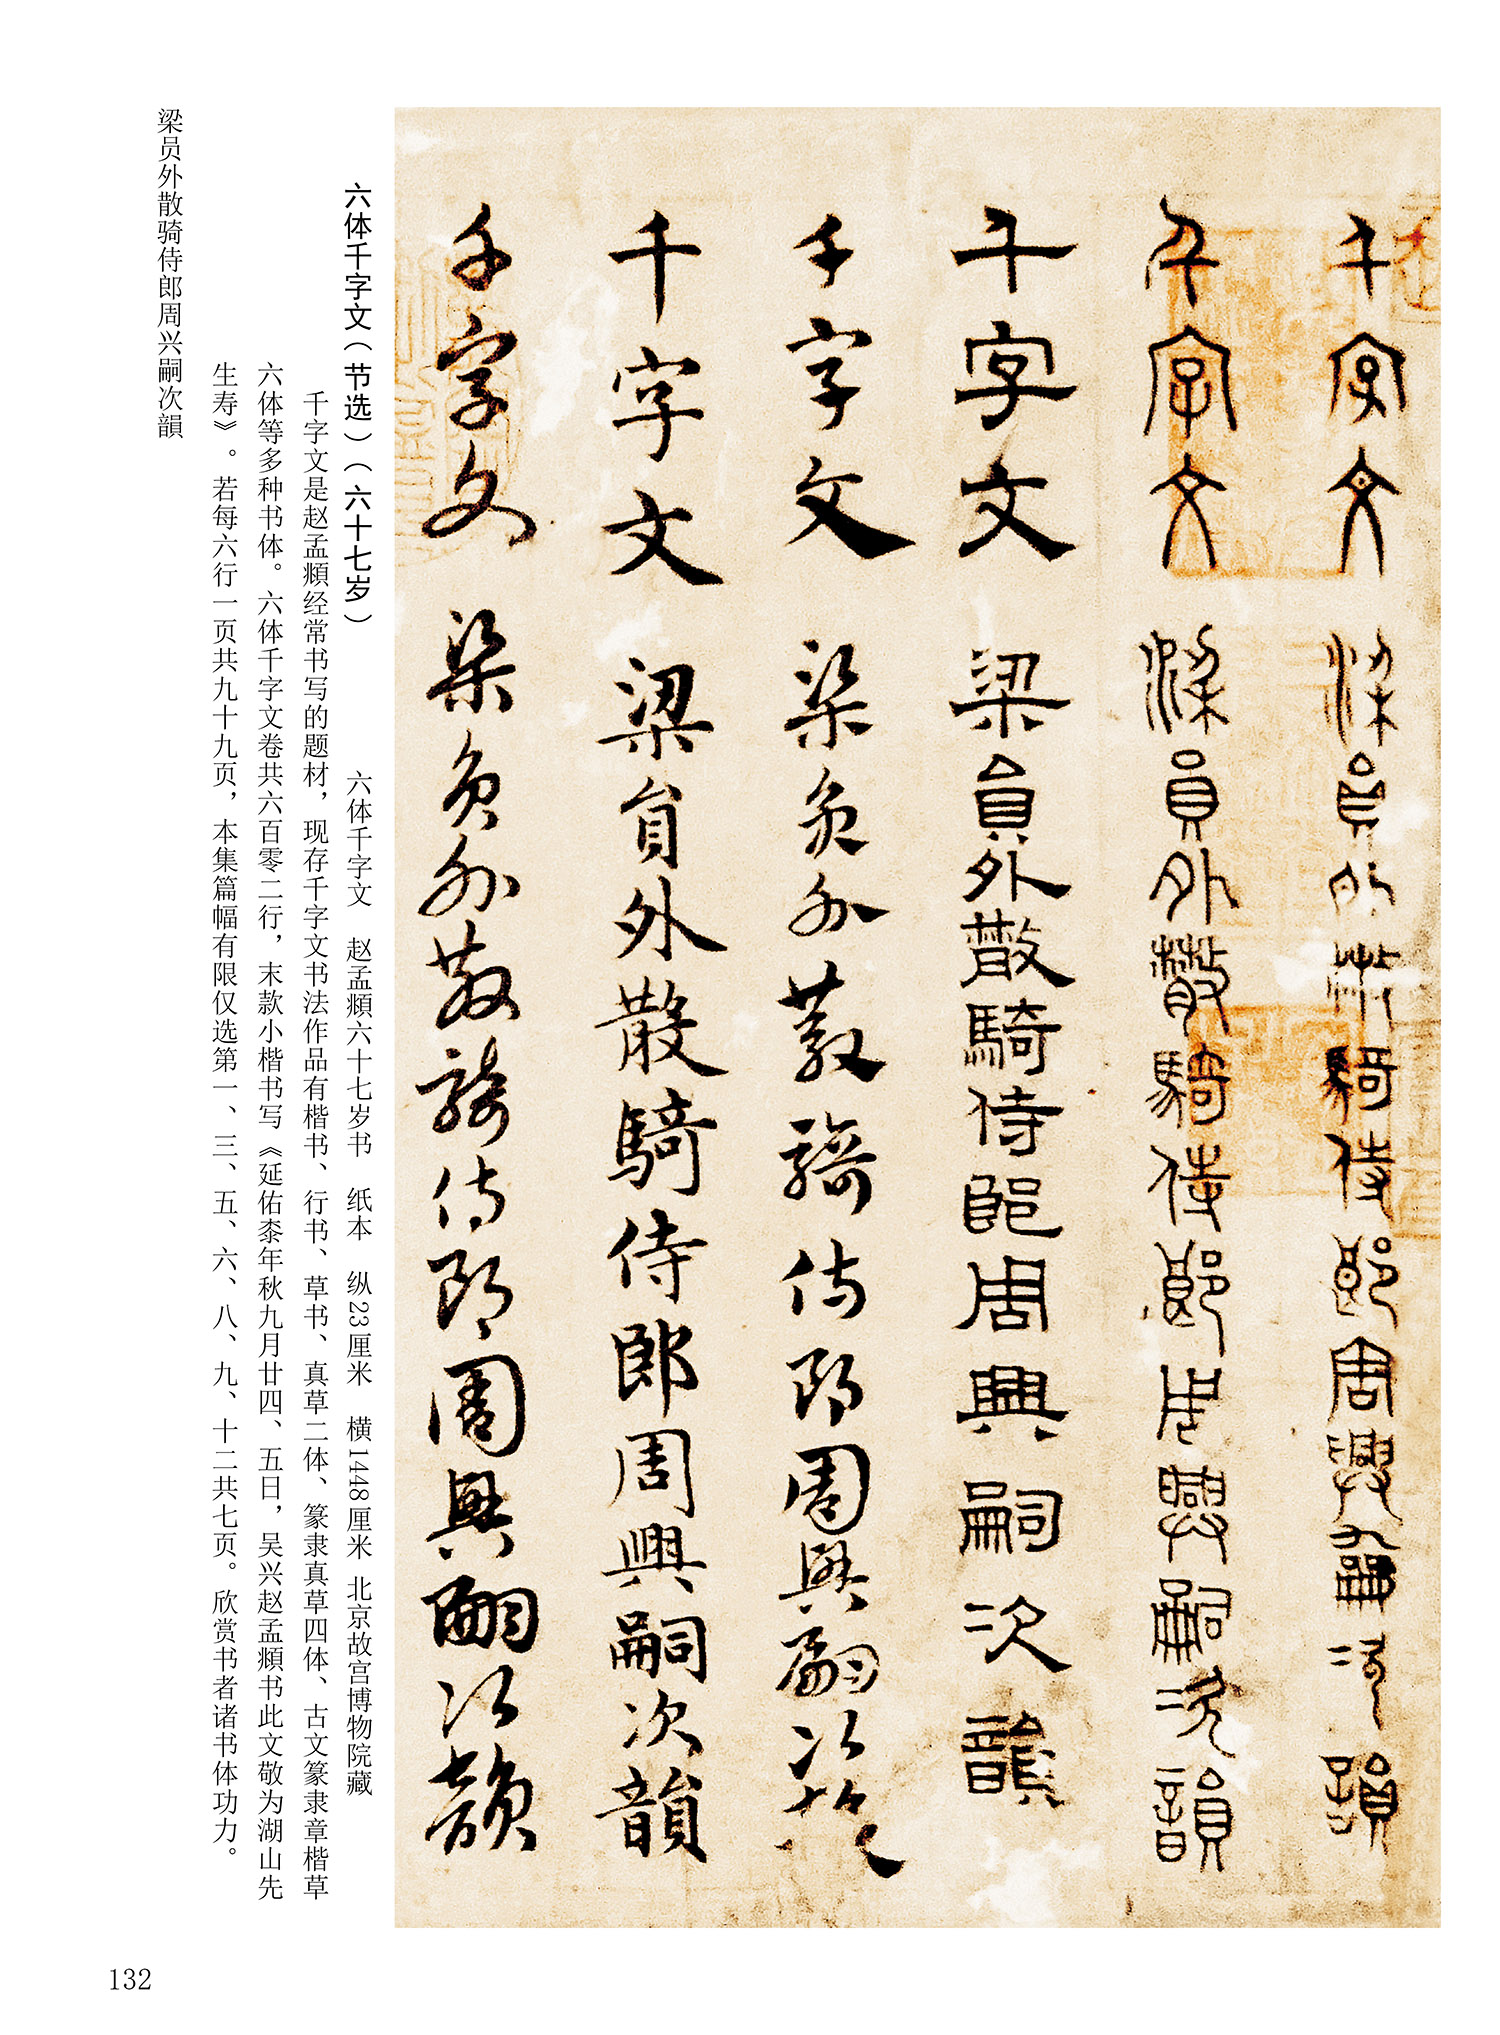 千字文 梁員外散騎侍郎周興嗣次韻
千字文 梁員外散騎侍郎周興嗣次韻
千字文 梁員外散騎侍郎周興嗣次韻
千字文 梁員外散騎侍郎周興嗣次韻
千字文 梁員外散騎侍郎周興嗣次韻
千字文 梁員外散騎侍郎周興嗣次韻
六体千字文（节选）（六十七岁） 六体千字文 赵孟頫六十七岁书 纸本 纵23厘米 横1448厘米 北京故宫博物院藏
千字文是赵孟頫经常书写的题材，现存千字文书法作品有楷书、行书、草书、真草二体、篆隶真草四体、古文篆隶章楷草
六体等多种书体。六体千字文卷共六百零二行，末款小楷书写《延佑桼年秋九月廿四、五日，吴兴赵孟頫书此文敬为湖山先
生寿》。若每六行一页共九十九页，本集篇幅有限仅选第一、三、五、六、八、九、十二共七页。欣赏书者诸书体功力。
梁员外散骑侍郎周兴嗣次韻
132